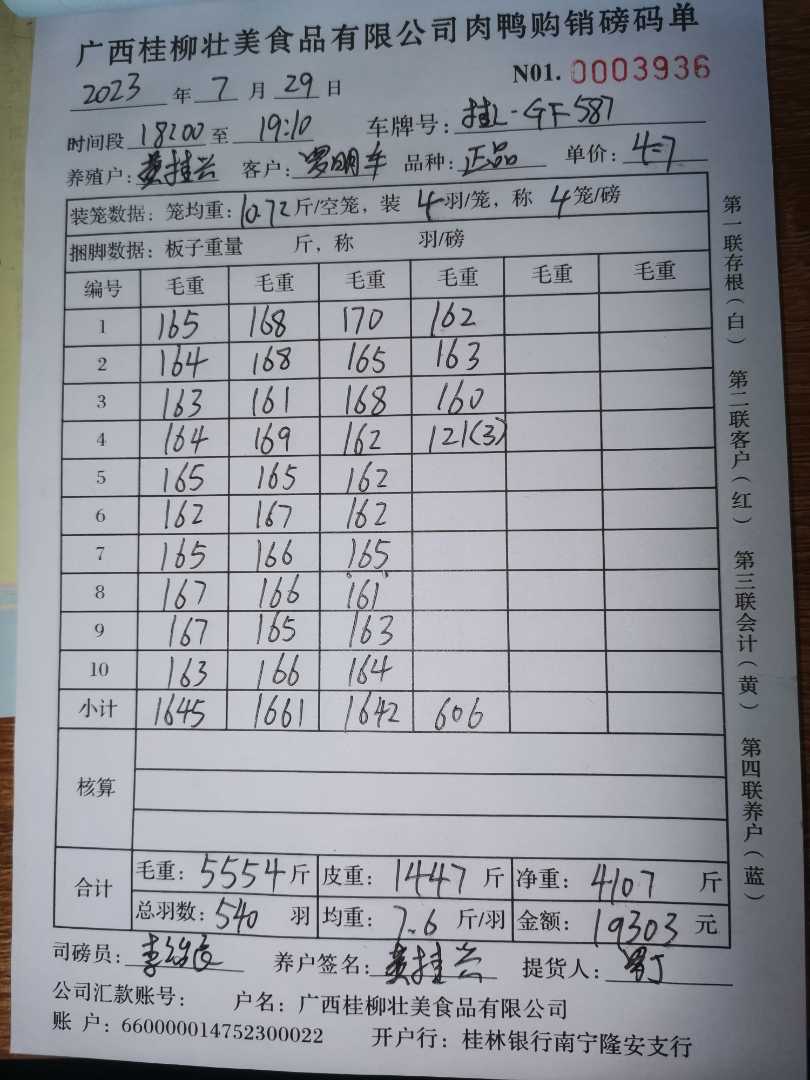 广西桂柳壮美食品有限公司肉鸭购销磅码单
2023 年 7 月 29 日 N01. 0003936
时间段 18:00 至 19:10 车牌号: 桂L-GF587
养殖户: 黄桂兴 客户: 罗明车 品种: 正品 单价: 4=7
装笼数据: 笼均重: 10.72 斤/空笼, 装 4 羽/笼, 称 4 笼/磅
捆脚数据: 板子重量 斤, 称 羽/磅
编号 毛重 毛重 毛重 毛重 毛重 毛重
1 165 168 170 162
2 164 168 165 163
3 163 161 168 160
4 164 169 162 121(3)
5 165 165 162
6 162 167 162
7 165 166 165
8 167 166 161
9 167 165 163
10 163 166 164
小计 1645 1661 1642 606
核算
合计 毛重: 5554 斤 皮重: 1447 斤 净重: 4107 斤
总羽数: 540 羽 均重: 7.6 斤/羽 金额: 19303 元
司磅员: 养户签名: 黄桂兴 提货人:
公司汇款账号: 户名: 广西桂柳壮美食品有限公司
账 户: 660000014752300022 开户行: 桂林银行南宁隆安支行
第一联存根(白) 第二联客户(红) 第三联会计(黄) 第四联养户(蓝)